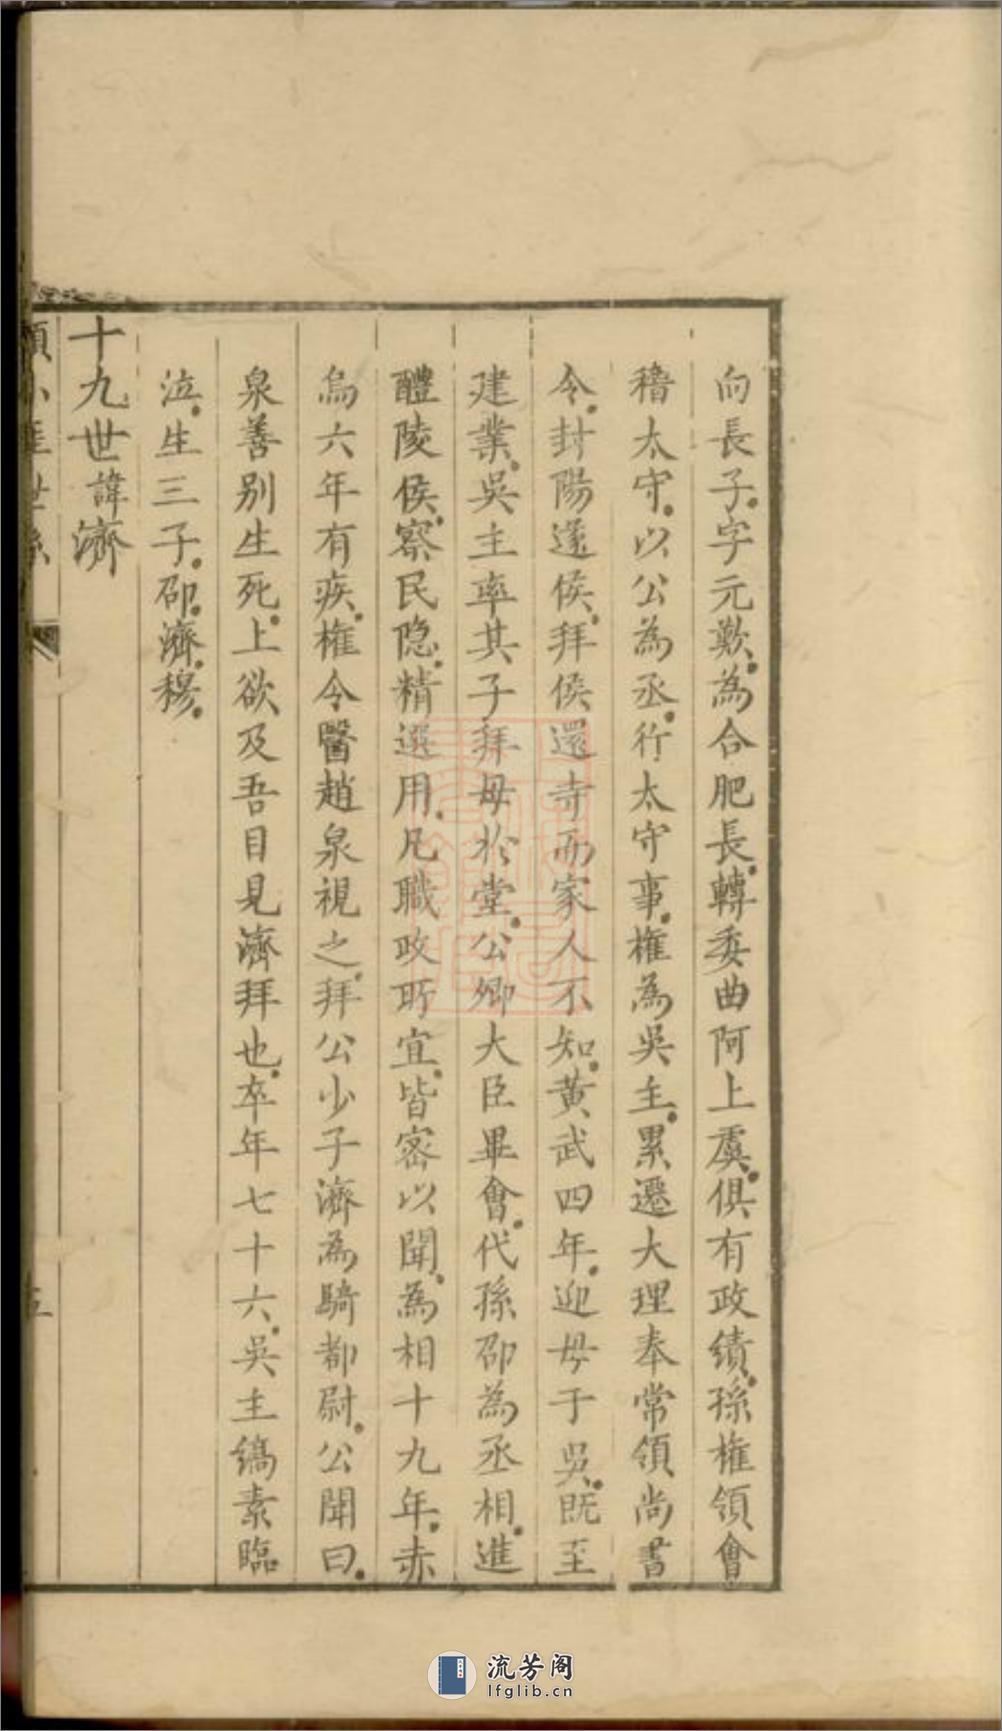 向長子字元歎為合肥長轉委曲阿上虞俱有政績孫權領會
稽太守以公為丞行太守事權為吳主累遷大理奉常領尚書
令封陽遂侯拜侯還寺而家人不知黃武四年迎母于吳既至
建業吳主率其子拜母於堂公卿大臣畢會代孫邵為丞相進
醴陵侯察民隐精選用凡職政所宜皆密以聞為相十九年赤
烏六年有疾權令醫趙泉視之拜公少子濟為騎都尉公聞曰
泉善别生死上欲及吾目見濟拜也卒年七十六吳主縞素臨
泣生三子邵濟穆
十九世諱濟
五
流芳阁
lfglib.cn